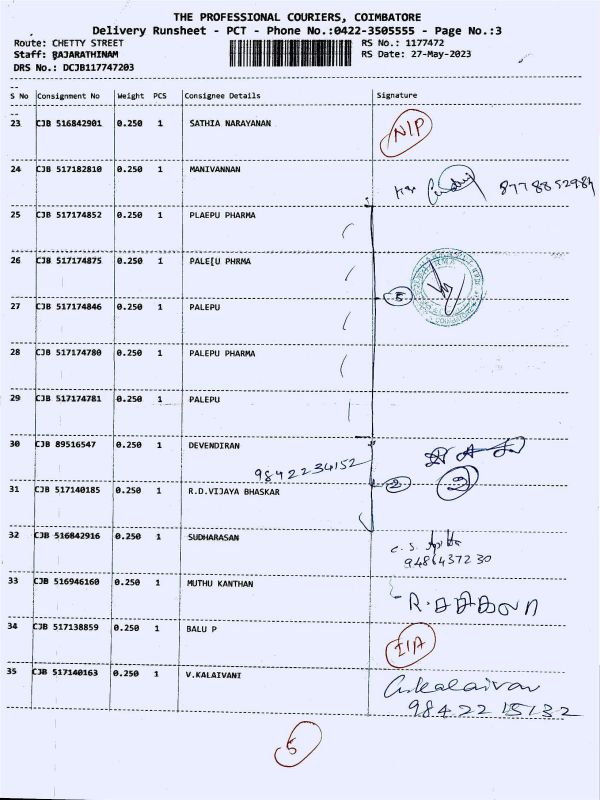 THE PROFESSIONAL COURIERS, COIMBATORE
Delivery Runsheet - PCT - Phone No.:0422-3505555 - Page No.:3
Route: CHETTY STREET RS No.: 1177472
Staff: BAJARATHINAM RS Date: 27-May-2023
DRS No.: DCJB117747203
S No Consignment No Weight PCS Consignee Details Signature
23 CJB 516842901 0.250 1 SATHIA NARAYANAN N/P
24 CJB 517182810 0.250 1 MANIVANNAN 8778852984
25 CJB 517174852 0.250 1 PLAEPU PHARMA
26 CJB 517174875 0.250 1 PALE[U PHRMA
5
27 CJB 517174846 0.250 1 PALEPU
28 CJB 517174780 0.250 1 PALEPU PHARMA
29 CJB 517174781 0.250 1 PALEPU
30 CJB 89516547 0.250 1 DEVENDIRAN
9842234152
31 CJB 517140185 0.250 1 R.D.VIJAYA BHASKAR 2 2
32 CJB 516842916 0.250 1 SUDHARASAN
9486437230
33 CJB 516946160 0.250 1 MUTHU KANTHAN
34 CJB 517138859 0.250 1 BALU P I/A
35 CJB 517140163 0.250 1 V.KALAIVANI
98422 15132
5